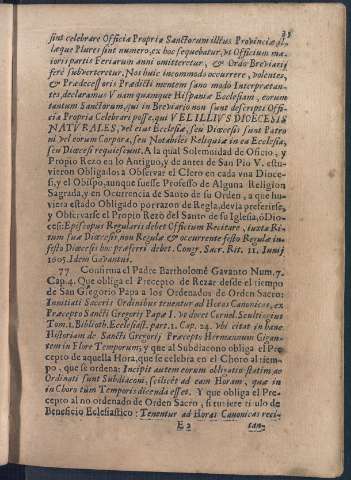 35
sint celebrare Officia Propria Sanctorum illius Provinciæ, il-
læque Plures sint numero, ex hoc sequebatur, vt Officium ma-
ioris partis Feriarum anni omitteretur, & Ordo Breviarij
ferè subverteretur. Nos huic incommodo occurrere, volentes,
& Prædecessoris Prædicti mentem sano modo Interprætan-
tes, declaramus Vnamquamque Hispaniæ Ecclesiam, eorum
tantum Sanctorum, qui in Breviario non sunt descripti Offi-
cia Propria Celebrari posse, qui VEL ILLIVS DIOECESIS
NATVRALES, vel eius Ecclesiæ, seu Diœcesis sunt Patro
ni vel eorum Corpora, seu Notabiles Reliquiæ in ea Ecclesia,
seu Diœcesi requiescunt. A la qual Solemnidad de Oficio, y
Propio Rezo en lo Antiguo, y de antes de San Pio V. estu-
vieron Obligados à Observar el Clero en cada vna Dioce-
si, y el Obispo, aunque fuesse Professo de Alguna Religion
Sagrada, y en Ocurrencia de Santo de su Orden, à que hu-
viera estado Obligado por razon de Regla, devia preferirse,
y Observarse el Propio Rezo del Santo de su Iglesia, ò Dio-
cesi: Episcopus Regularis debet Officium Recitare, iuxta Ri-
tum suæ Diœcesis, non Regulæ & occurrente festo Regulæ in
festa Diœcesi hoc præferri debet. Congr. Sac. Rit. 11. Iunij
1605. Idem Gavantui.
77 Confirma el Padre Bartholomè Gavanto Num. 7.
Cap. 4. Que obliga el Precepto de Rezar desde el tiempo
de San Gregorio Papa à los Ordenados de Orden Sacro:
Innitiati Sacris Ordinibus tenentur ad Horas Canonicas, ex
Præcepto Sancti Gregorij Papæ I. vt docet Cornel. Sculting ius
Tom. 1. Biblioth. Ecclesiast. part. 1. Cap. 24. vbi citat in hanc
Historiam de Sancti Gregorij Præcepto Hermannum Gigan-
tem in Flore Temporum; y que al Subdiacono obliga el Pre-
cepto de aquella Hora, que se celebra en el Choro al tiem-
po, que se ordena: Incipit autem eorum obligatio statim, ac
Ordinati sunt Subdiaconi, scilicèt ad eam Horam, quæ in
in Choro tùm Temporis dicenda esset. Y que obliga el Pre-
cepto al no ordenado de Orden Sacro, si tuviere titulo de
Beneficio Eclesiastico: Tenentur ad Horas Canonicas reci-
E 2 tan-